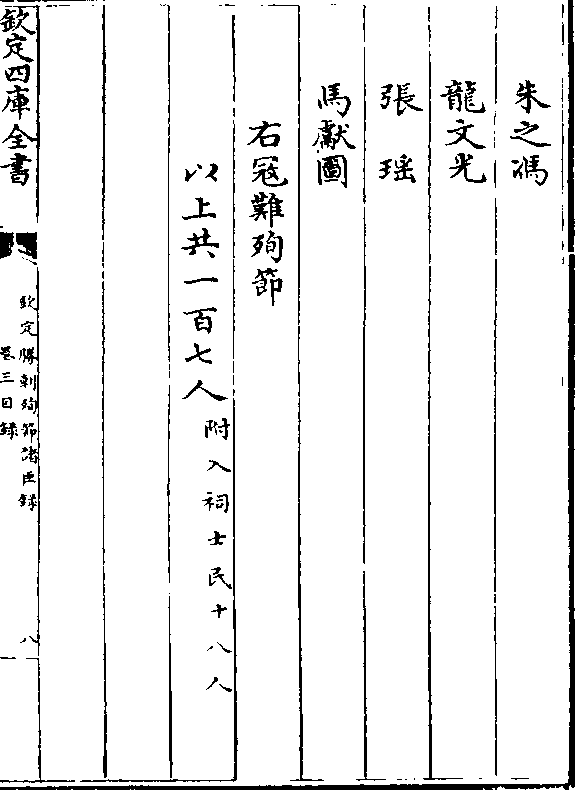 朱之馮
龍文光
張瑶
馬獻圖
右冦難殉節
以上共一百七人附入祠士民十八人
欽定四庫全書
欽定勝朝殉節諸臣録
卷三目録
八